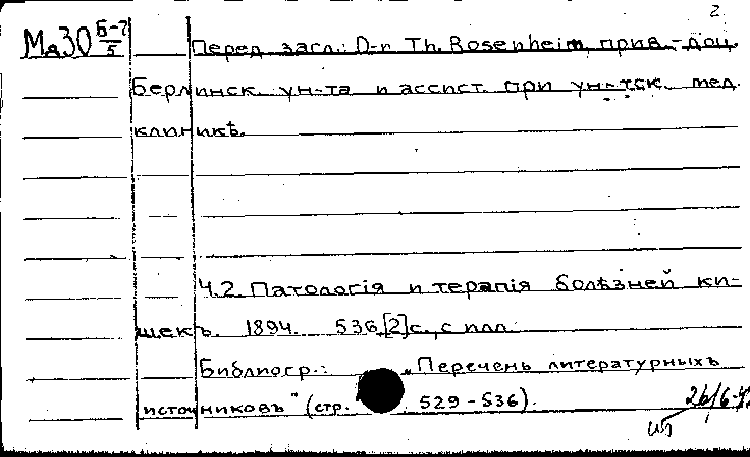 2
Ма30 Б-7/5
Перед загл.: D-r Th. Rosenheim, прив.-доц.
Берлинск. ун-та и ассист. при ун-тск. мед.
клиникѣ.
Ч.2. Патологія и терапія болѣзней ки-
шекъ. 1894. 536,[2]с., с илл.
Библиогр.: „Перечень литературныхъ
источниковъ" (стр. 529-536).
26/6-